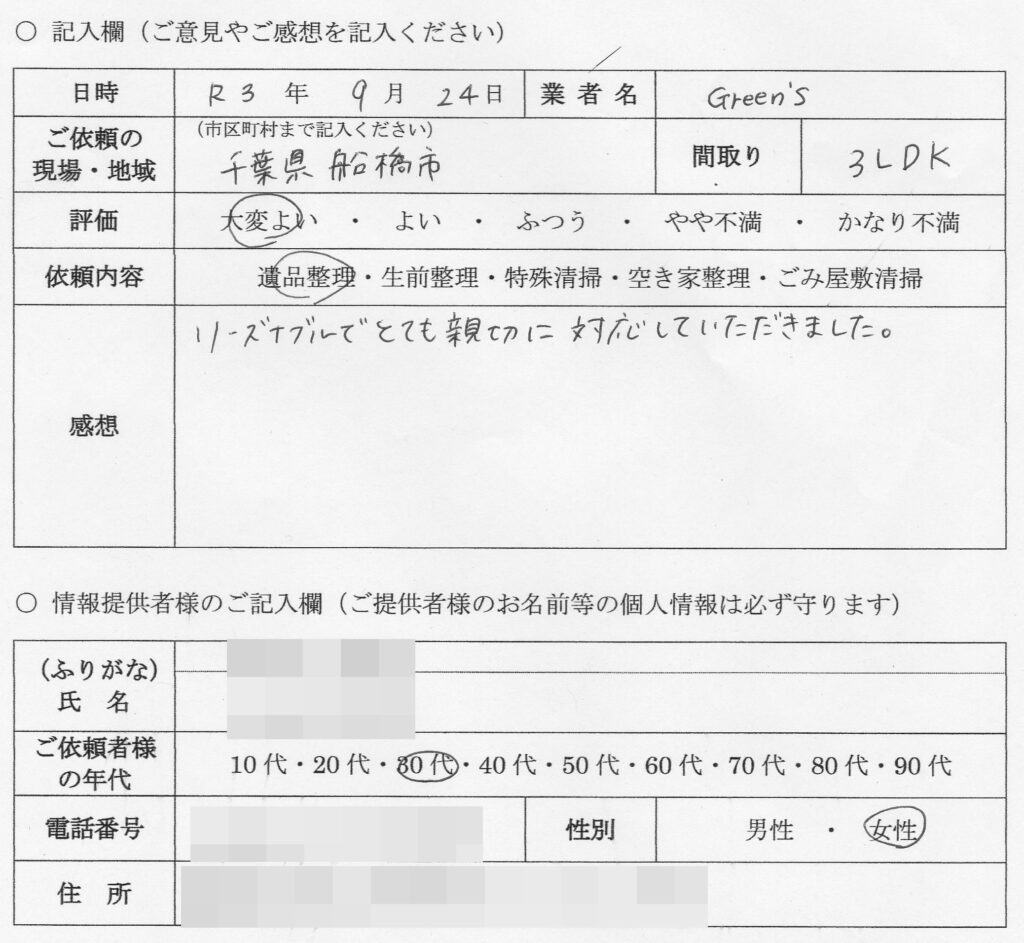 ○ 記入欄（ご意見やご感想を記入ください）
日時 R3年 9月 24日 業者名 Green's
ご依頼の
現場・地域
（市区町村まで記入ください）
千葉県 船橋市
間取り 3LDK
評価 大変よい ・ よい ・ ふつう ・ やや不満 ・ かなり不満
依頼内容 遺品整理・生前整理・特殊清掃・空き家整理・ごみ屋敷清掃
感想
リーズナブルでとても親切に対応していただきました。
○ 情報提供者様のご記入欄（ご提供者様のお名前等の個人情報は必ず守ります）
（ふりがな）
氏 名
ご依頼者様
の年代
10代・20代・30代・40代・50代・60代・70代・80代・90代
電話番号 性別 男性 ・ 女性
住 所